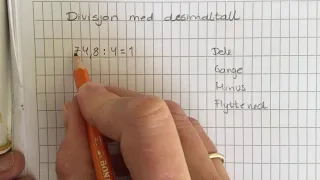 Divisjon med desimaltall
74,8 : 4 = 1
Dele
Gange
Minus
Flytt ned
BON